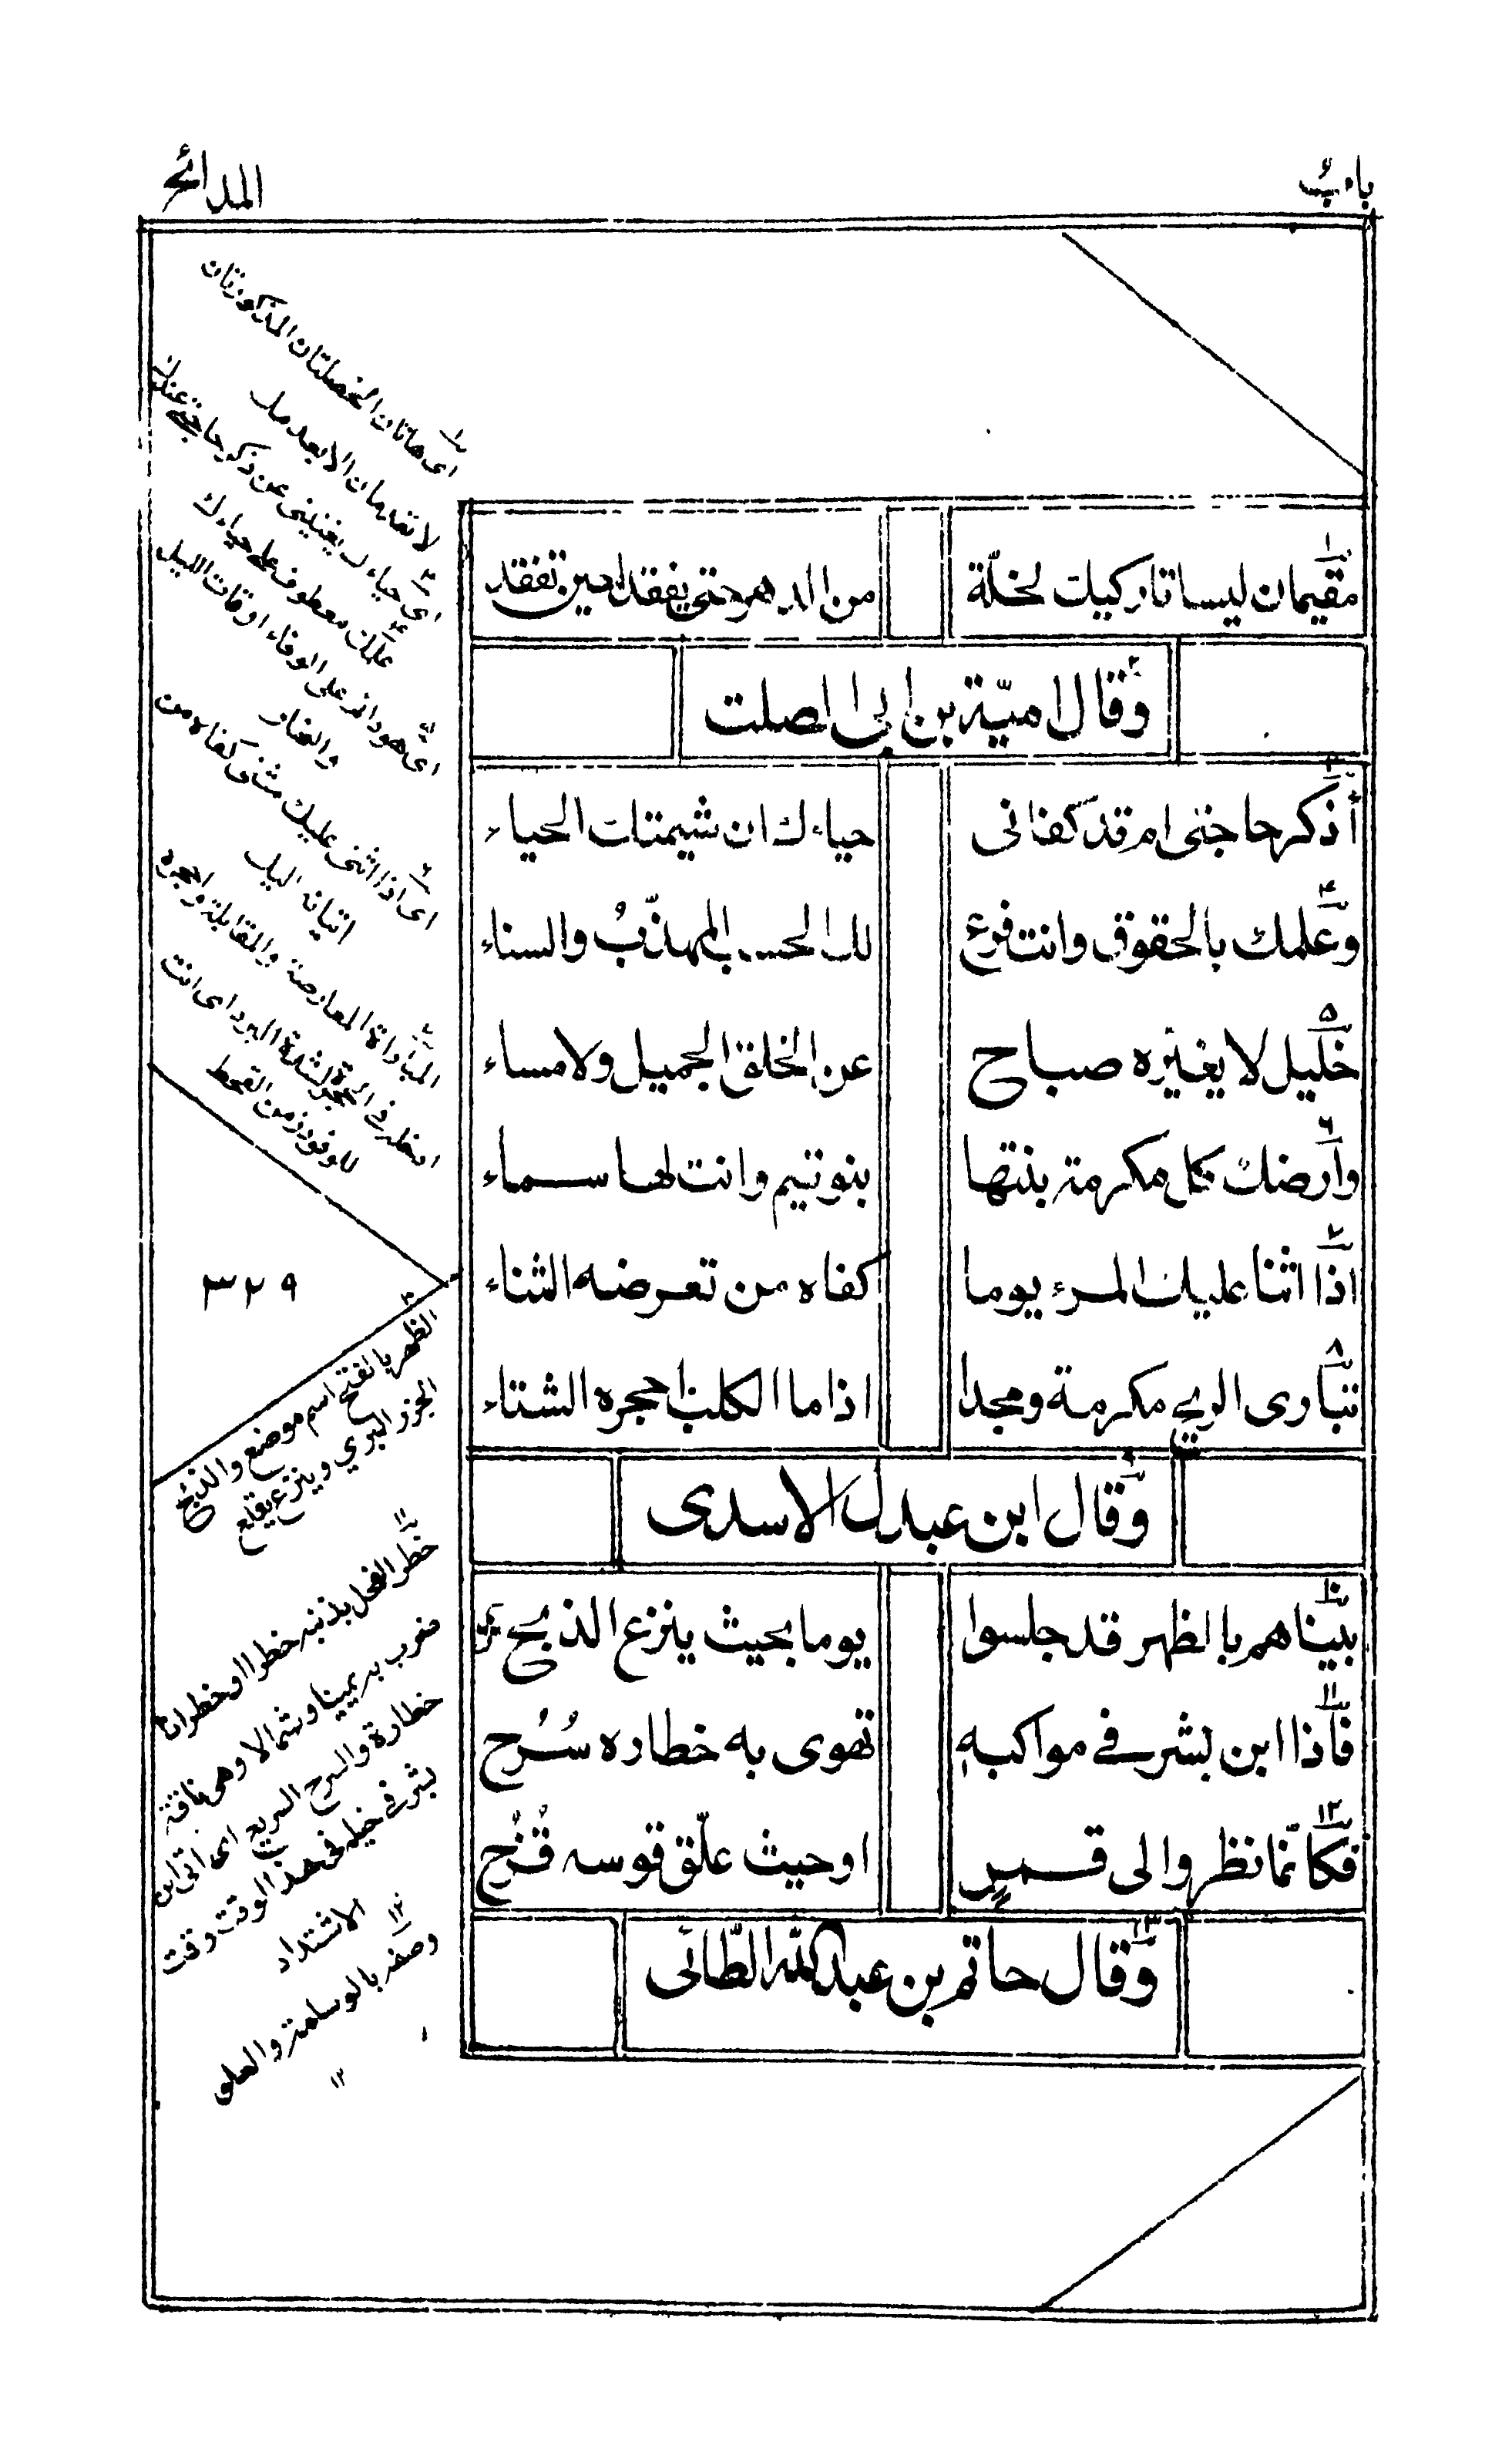 باب المدائح
مقيمان ليسا تاركيك لخلّة من الدهر حتى يفقدا حين تفقد
وقال امية بن ابى الصلت
أأذكر حاجتى ام قد كفانى حياءك ان شيمتك الحياء
وعلمك بالحقوق وانت فرع لك الحسب المهذّبُ والسناء
خليل لا يغيّره صباح عن الخلق الجميل ولا مساء
وارضك كل مكرمة بنتها بنو تيم وانت لها سماء
اذا اثنا عليك المرء يوما كفاه من تعرضه الثناء
تبارى الريح مكرمة ومجدا اذا ما الكلب احجره الشتاء
وقال ابن عبدل الاسدى
بينا هم بالظهر قد جلسوا يوما بحيث ينزع الذبح
فاذا ابن بشر فى مواكبه تهوى به خطاره سُرُح
فكانّما نظروا الى قمر او حيث علّق قوسه قُزُح
وقال حاتم بن عبدالله الطّائى
اى هاتان الخصلتان المذكورتان
لا تعدمان الا بعدمك
اى حياءك يغنينى عن ذكر حاجتى عندك
علمك معطوف على حياءك
اى هو دائم على الوفاء اوقات الليل
والنهار
اى اذا اثنى عليك مثن كفاه من
اتيانه اليك
المباراة المعارضة والمقابلة واحجره
ادخله فى الحجرة لشدة البرد اى انت
للوفود زمن القحط
٣٢٩
الظهر بالفتح اسم موضع والذبح
الجزر البري وينزع يقلع
خطر الفحل بذنبه خطرا وخطرانا
ضرب به يمينا وشمالا وهى ناقة
خطارة والسرح السريع اى اتى ابن
بشر فى خيله فى هذا الوقت وقت
الاشتداد
وصفه بالوسامة والعلو
١٢